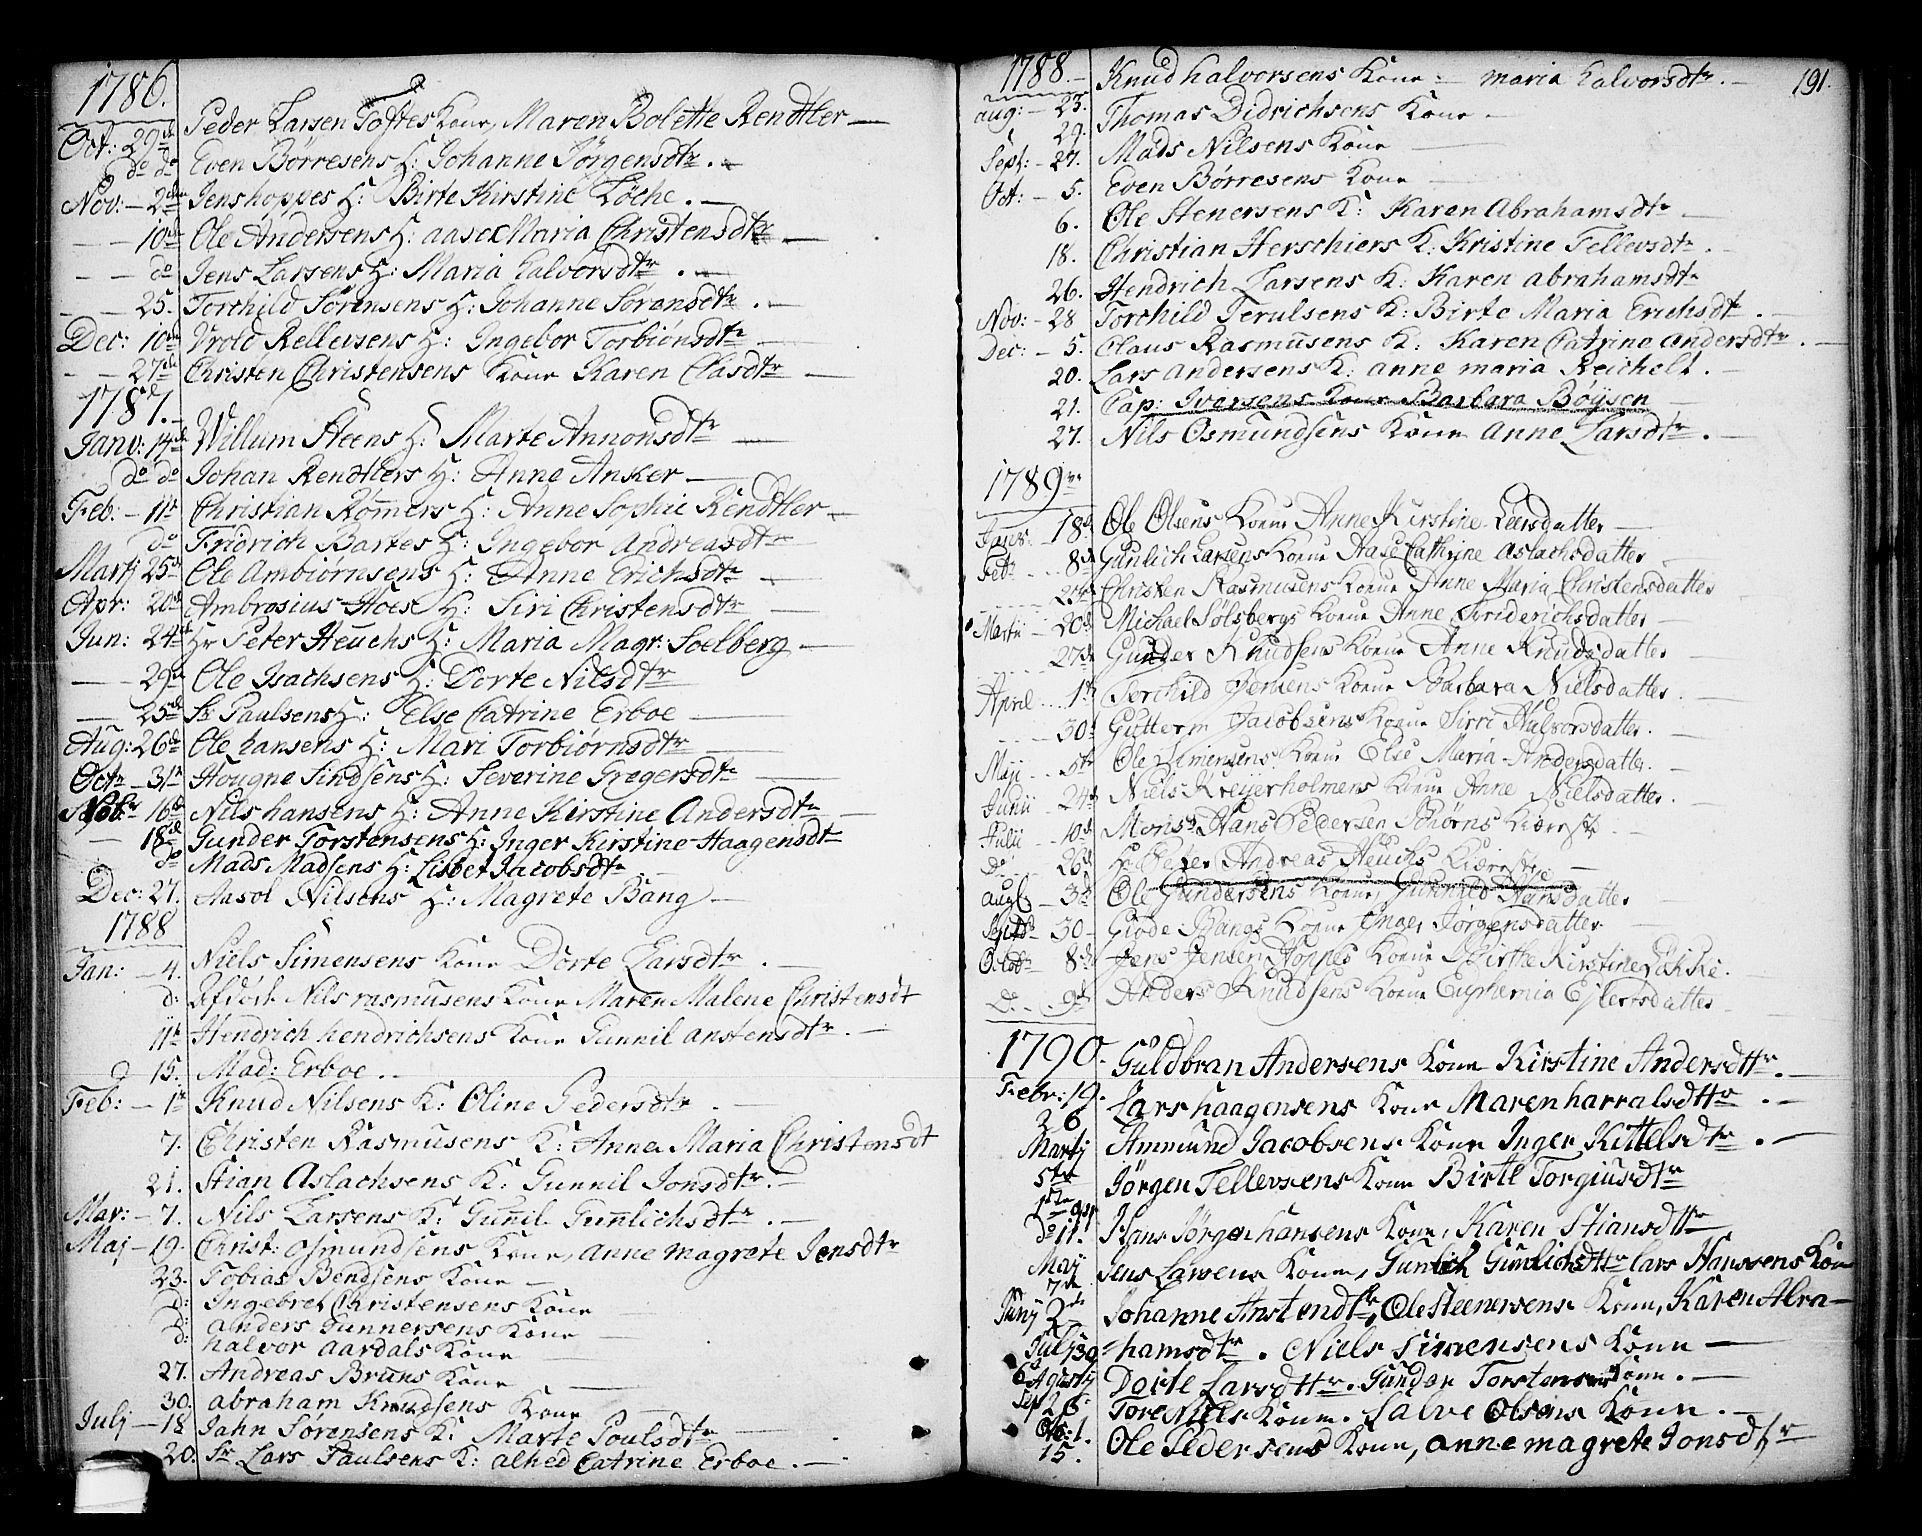 1786.
Peder Larsen Toftes Kone, Maren Bolette Rendtler —
Oct: 29de
do do Even Börresens H: Johanne Jörgensdtr. —
Nov: — 2den Jens hoppes H: Birte Kirstine Löche. —
— — 10de Ole Andersens H: aase Maria Christensdtr —
— — do Jens Larsens H: Maria halvorsdtr. —
— — 25. Torchild Sörensens H: Johanne Sörensdtr. —
Dec: 10de Vrold Rellevsens H: Ingebor Torbiönsdtr —
— — 27de Christen Christensens Kone Karen Clasdtr —
1787.
Janv: 14de Willum Steens H: Marte Annonsdtr —
do do Johan Rendtlers H: Anne Anker —
Feb: — 11te Christian Römers H: Anne Sophie Rendtler —
do Fridrich Bartes H: Ingebor Andreasdtr —
Martj 25de Ole Ambiörnsens H: Anne Erichsdtr —
Apr: 20de Ambrosius Hoes H: Siri Christensdtr —
Jun: 24de Hr Peter Heuchs H: Maria Magr: Soelberg —
— — 29de Ole Isachsens H: Dorte Nilsdtr
— 25de Sr Paulsens H: Else Catrine Erboe —
Aug: 26de Ole hansens H: Mari Torbiörnsdtr —
Octr — 31te Hougne Sindsens H: Severine Gregersdtr —
Nobr 16de Nils hansens H: Anne Kirstine Andersdtr —
— 18de Gunder Torstensens H: Inger Kirstine Haagensdtr
do Mads Madsens H: Lisbet Jacobsdtr
Dec: 27. Aasol Nilsens H: Magrete Bang —
1788
Jan: — 4. Niels Simensens Kone Dorte Larsdtr. —
d: Afdöde Nils rasmusens Kone Maren Malene Christensdt
11te Hendrich hendrichsens Kone Gunnil anstensdtr. —
15. Mad: Erboe. —
Feb: — 1te Knud Nilsens K: Oline Pedersdtr. —
7. Christen Rasmusens K: Anne Maria Christensdt
21. Stian Aslachsens K: Gunnil Jonsdtr. —
Mar: — 7. Nils Larsens K: Gunil Gunlichsdtr. —
Maj — 19. Christ: Osmundsens Kone, anne magrete Jensdtr
23. Tobias Bendsens Kone —
d: Ingebret Christensens Kone
d: anders Gunnersens Kone —
halvor aardals Kone —
27. Andreas Bruns Kone —
30. abraham Knudsens Kone —
Julj — 18 Jahn Sörensens K: Marte Poulsdtr —
20. Sr Lars Paulsens K: alhed Catrine Erboe. —
191.
1788. — Knud halvorsens Kone — maria halvorsdtr. —
aug: — 23. Thomas Didrichsens Kone —
29.
Sept: — 27. Mads Nilsens Kone —
Oct: — 5. Even Börresens Kone —
6. Ole Stenersens K: Karen Abrahamsdtr —
18. Christian Herschiers K: Kristine Tellevsdtr. —
26. Hendrich Larsens K: Karen abrahamsdtr
Nov: — 28 Torchild Terulsens K: Birte Maria Erichsdt. —
Dec: — 5. Claus Rasmusens K: Karen Catrine andersdtr. —
20. Lars andersens K: anne maria Reichelt. —
21. Cap: Iversens Kone Barbara Böysen —
27. Nils Osmundsens Kone Anne Larsdtr. —
1789
Janv. — 18de Ole Olsens Kone Anne Kirstine Leersdatter —
Febr. — 8de Gunlich Larsens Kone Aase Cathrine Aslachsdatter —
Christen Rasmusens Kone Anne Maria Christensdatter
Martii — 20de Michael Sölsbergs Kone Anne Friderichsdatter —
27de Gunder Knudsens Kone Anne Knudsdatter —
April — 1te Terchild Jensens Kone Barbara Nielsdatter. —
30te Gutterm Jacobsens Kone Sirri Halvorsdatter. —
Maji — 5te Ole Simensens Kone Else Maria Andersdatter. —
Junii — 24de Niels Kreyerholmens Kone Anne Nielsdatter. —
Julii — 10de Monsr Hans Pedersen Biörns Kiereste. —
do — 26de Hr Peter Andreas Heuchs Kiereste —
augl. — 3de Ole Gundersens Kone Gunnild Hansdatter
Septbr — 30 — Giöde Bangs Kone Inger Jörgensdatter —
Octobr — 8de Jens Jensen Hoppes Kone Birthe Kirstine Lökke. —
D. — 9de Anders Knudsens Kone Euphemia Ejlertsdatter —
1790. Guldbran Andersens Kone Kirstine Andersdttr. —
Febr: 19. Lars haagensens Kone Maren harralsdttr. —
26
Martj Ammund Jacobsens Kone Inger Kittelsdtr. —
5te Jörgen Tellevsens Kone Birte Torgiusdtr
do 11. Hans Jörgenhansens Kone, Karen Stiansdttr
Maj Jens Larsens Kone, Gunlich Gunlichsdttr Lars Hanssens Kone
7de
Junj 2den Johanne Anstendtr, Ole Steenersens Kone, Karen Abra —
Julj 30 = hamsdtr. Niels Simensens Kone —
Agustj Dorte Larsdttr. Gunder Torstensens Kone. —
Sep 26 Tore Niels Kone. Salve Olsens Kone. —
Ob: 1.
15. Ole Pedersens Kone, anne magrete Jonsdtr